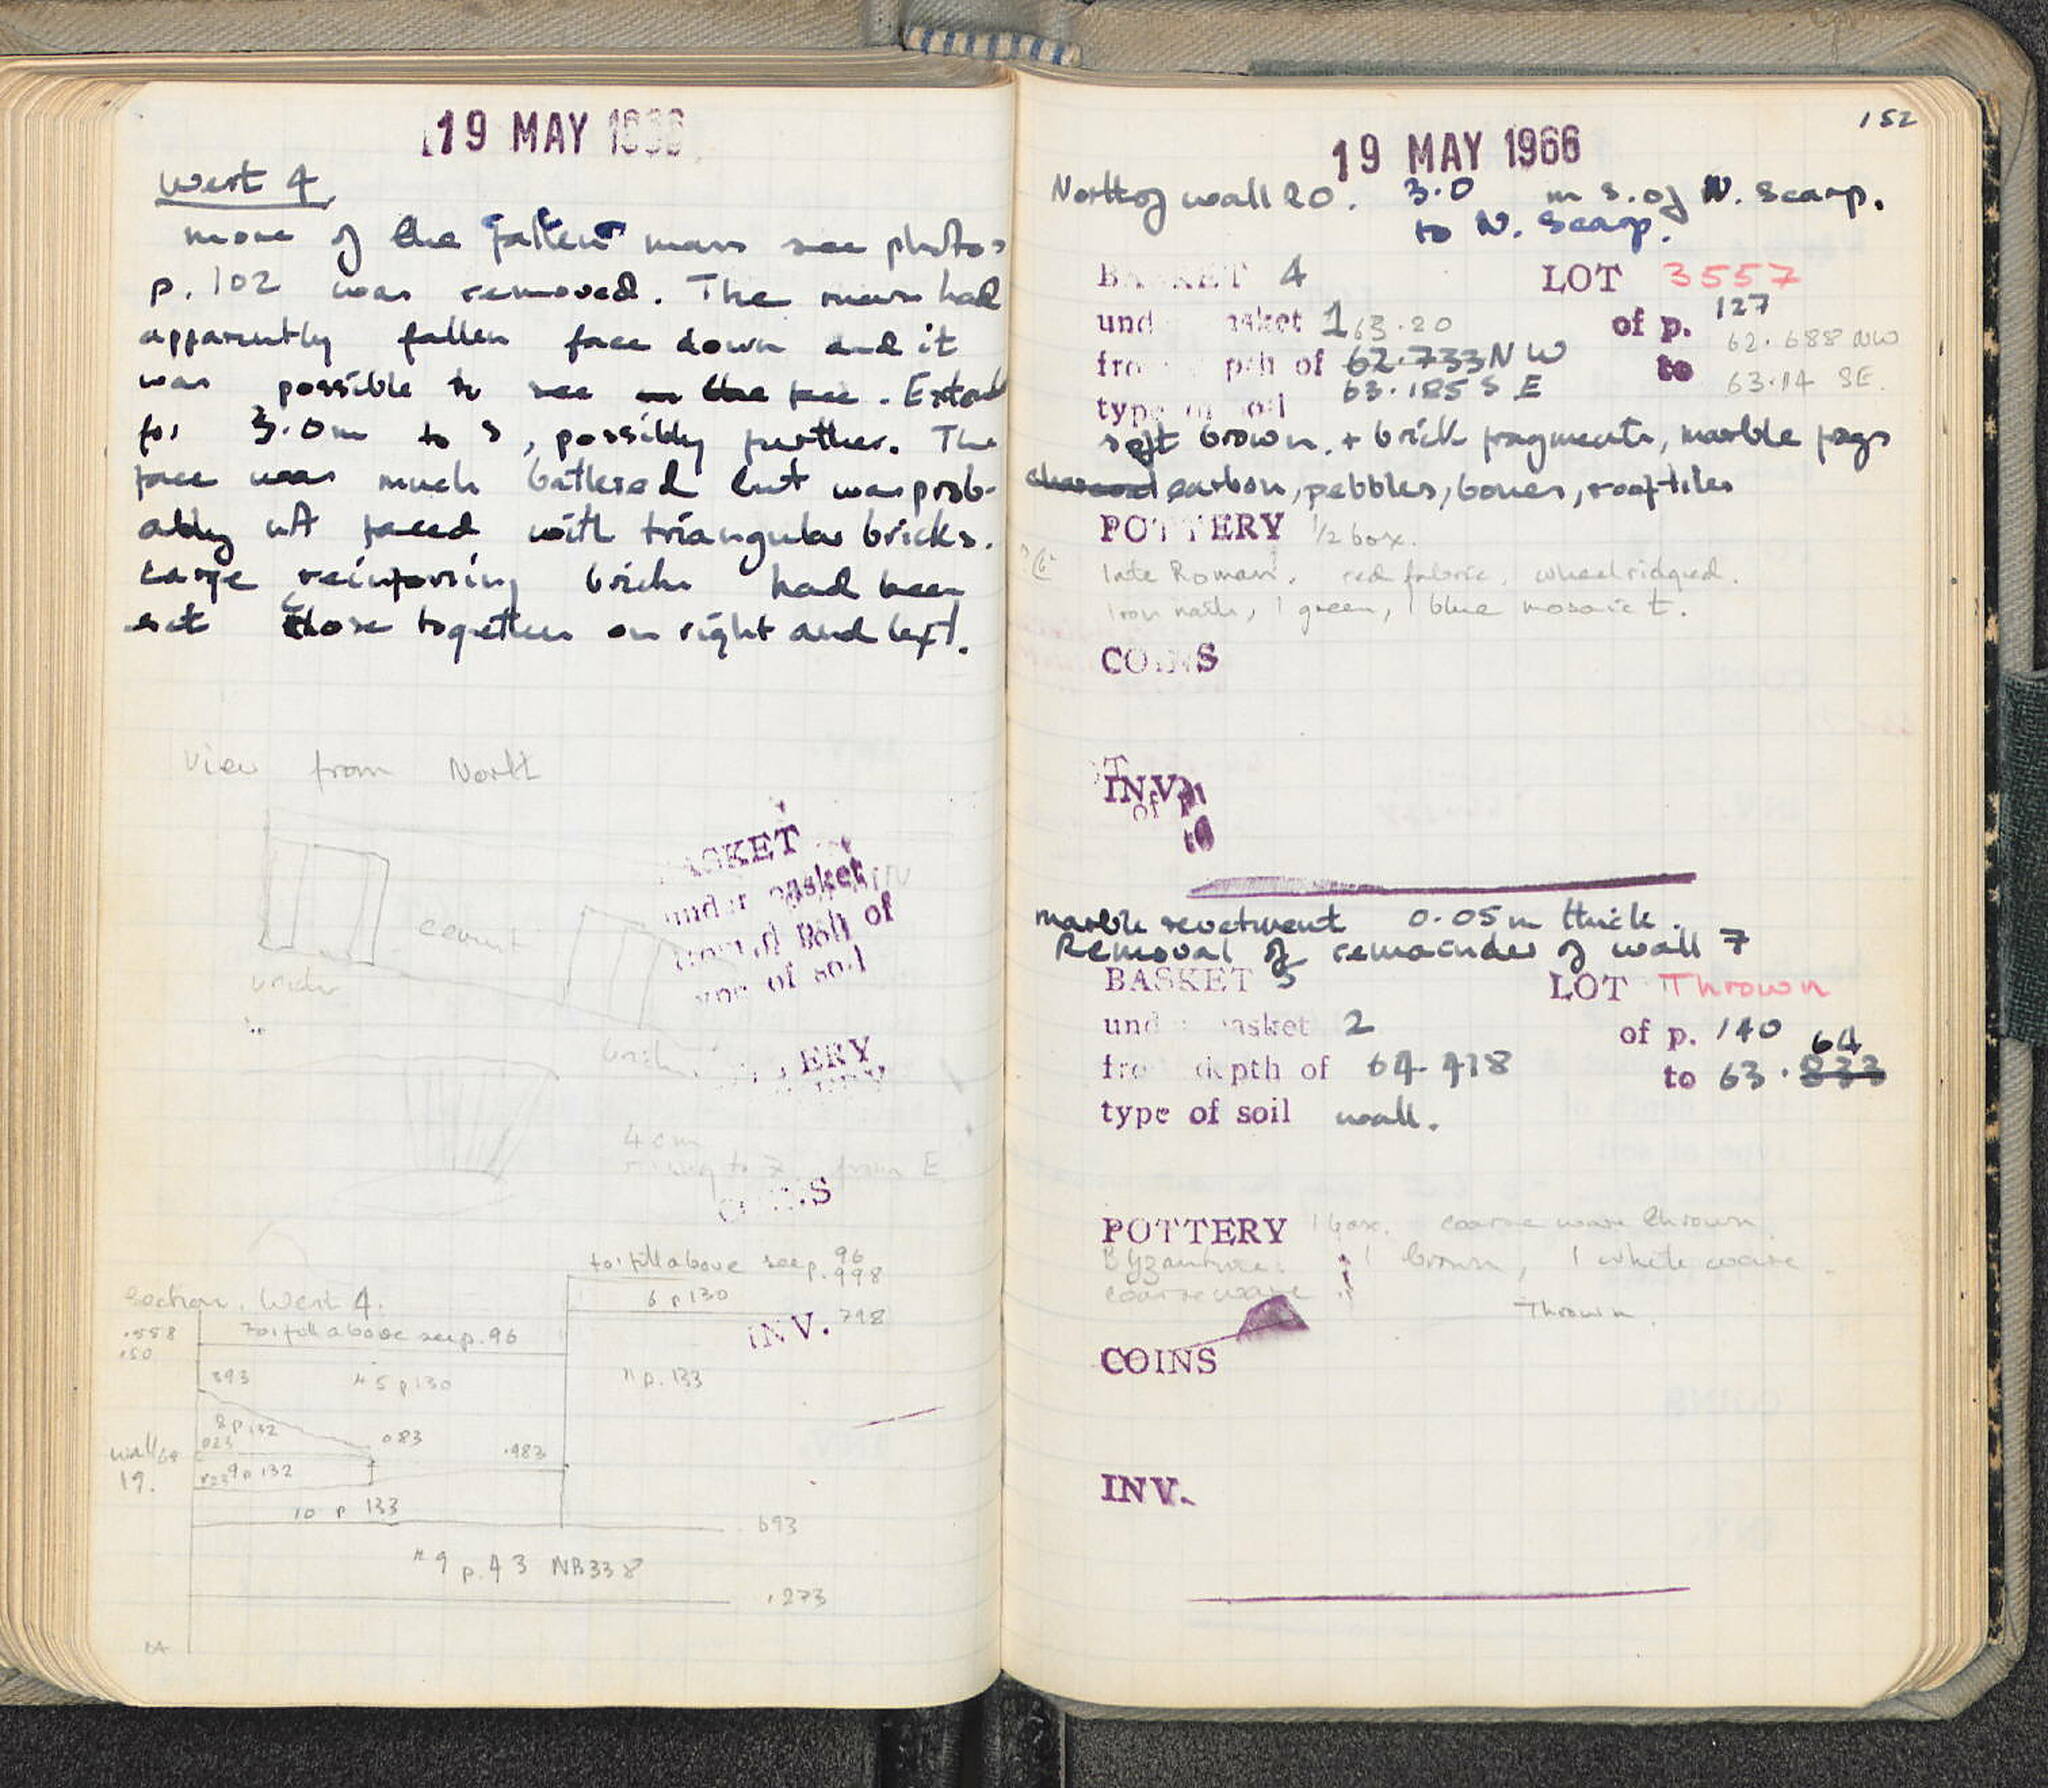 19 MAY
West 4
more of the fallen mass see photos
p. 102 was removed. The mass had
apparently fallen face down and it
was possible to see face. Extends
for 3.0m to S, possibly further. The
face was much battered but was prob-
ably not faced with triangular bricks.
Large reinforcing bricks had been
set close together on right and left.
View from North
cement
bricks
BASKET
under basket
of
of soil
4 cm
from E
for fill above see p. 96
998
Section. West 4.
6 p 130
.558
.50
For fill above see p. 96
INV. 798
893
" 5 p 130
11 p. 133
8 p 132
023
083
.983
wall
19.
9 p 132
10 p 133
693
" 9 p. 43 NB338
.273
152
19 MAY 1966
North of wall 20. 3.0 m S. of N. Scarp.
to N. Scarp.
BASKET 4 LOT 3557
under basket 1 63.20 of p. 127
from depth of 62.733 NW to 62.688 NW
63.185 SE 63.14 SE.
type of soil
soft brown. + brick fragments, marble frags
carbon, pebbles, bones, rooftiles
POTTERY 1/2 box.
late Roman. red fabric, wheelridged.
Iron nails, 1 green, 1 blue mosaic t.
COINS
INV.
of p.
to
marble revetment 0.05m thick.
Removal of remainder of wall 7
BASKET 5 LOT Thrown
under basket 2 of p. 140
from depth of 64.418 to 63.833 64
type of soil wall.
POTTERY 1 box. coarse ware thrown.
Byzantine. 1 brown, 1 white ware.
coarse ware
Thrown.
COINS
INV.